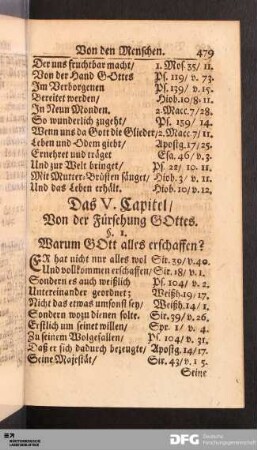 Von den Menschen. 479
Der uns fruchtbar macht/ 1. Mos. 35/ 11.
Von der Hand GOttes Ps. 119/ v. 73.
Im Verborgenen Ps. 139/ v. 15.
Bereitet werden/ Hiob. 10/ 8. 11.
In Neun Monden. 2. Macc. 7/28.
So wunderlich zugeht/ Ps. 139/ 14.
Wenn uns da Gott die Glieder/ 2. Macc. 7/ 11.
Leben und Odem giebt/ Apostg. 17/25.
Ernehret und träget Esa. 46/ v. 3.
Und zur Welt bringet/ Ps. 22/ 10. 11.
Mit Mutter-Brüsten säuget/ Hiob. 3/ v. 11.
Und das Leben erhält. Hiob. 10/ v. 12.
Das V. Capitel/
Von der Fürsehung GOttes.
§. 1.
Warum GOtt alles erschaffen?
ER hat nicht nur alles wol Sir. 39/ v. 40.
Und vollkommen erschaffen/ Sir. 18/ v. 1.
Sondern es auch weißlich Ps. 104/ v. 2.
Untereinander geordnet; Weißh. 19/ 17.
Nicht das etwas umsonst sey/ Weißh. 14/ 1.
Sondern wozu dienen solte. Sir. 39/ v. 26.
Erstlich um seinet willen/ Spr. 1/ v. 4.
Zu seinem Wolgefallen/ Ps. 104/ v. 31.
Daß er sich dadurch bezeugte/ Apostg. 14/17.
Seine Majestät/ Sir. 43/ v. 1 5.
Seine
DFG Deutsche
Forschungsgemeinschaft